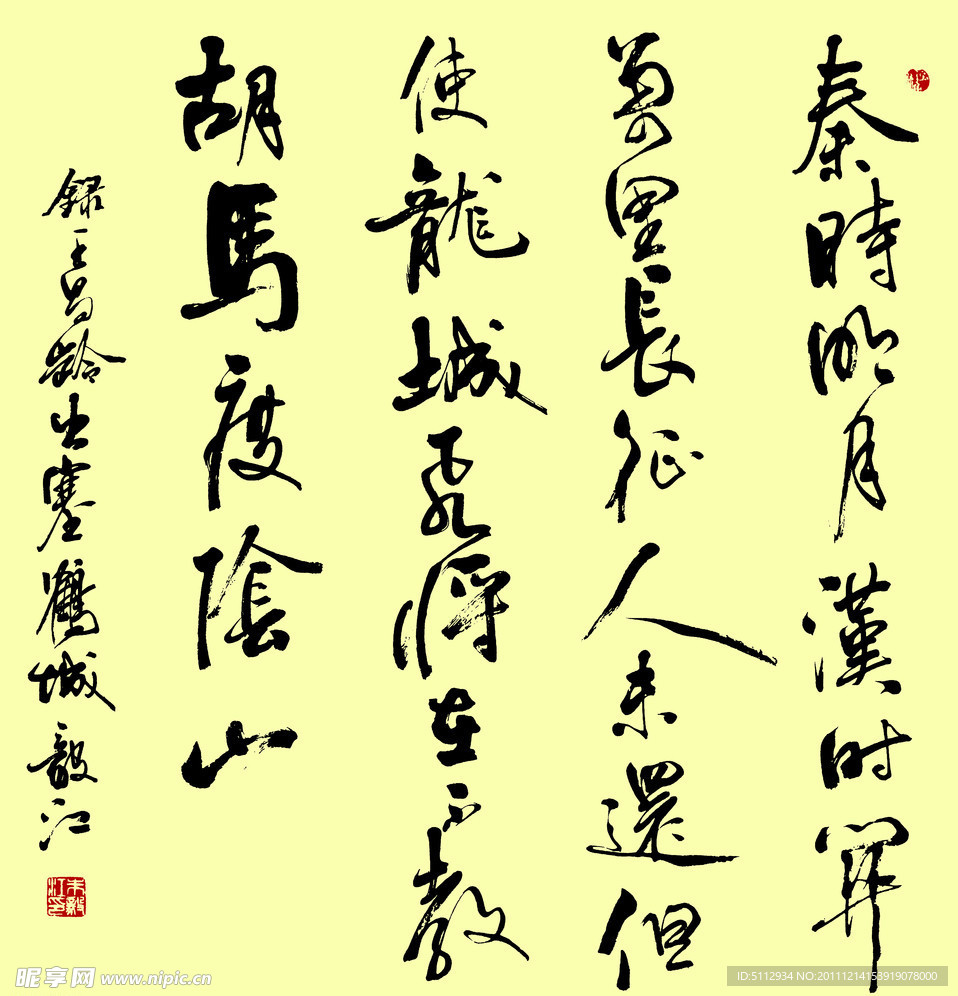 秦時明月漢时關
萬里長征人未還但
使龍城飛將在不教
胡馬度陰山
録王昌齡出塞鶴城毅江
朱毅江印
昵享网 www.nipic.cn
ID:5112934 NO:20111214153919078000